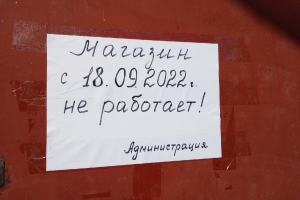 Магазин
с 18.09.2022г.
не работает!
Администрация